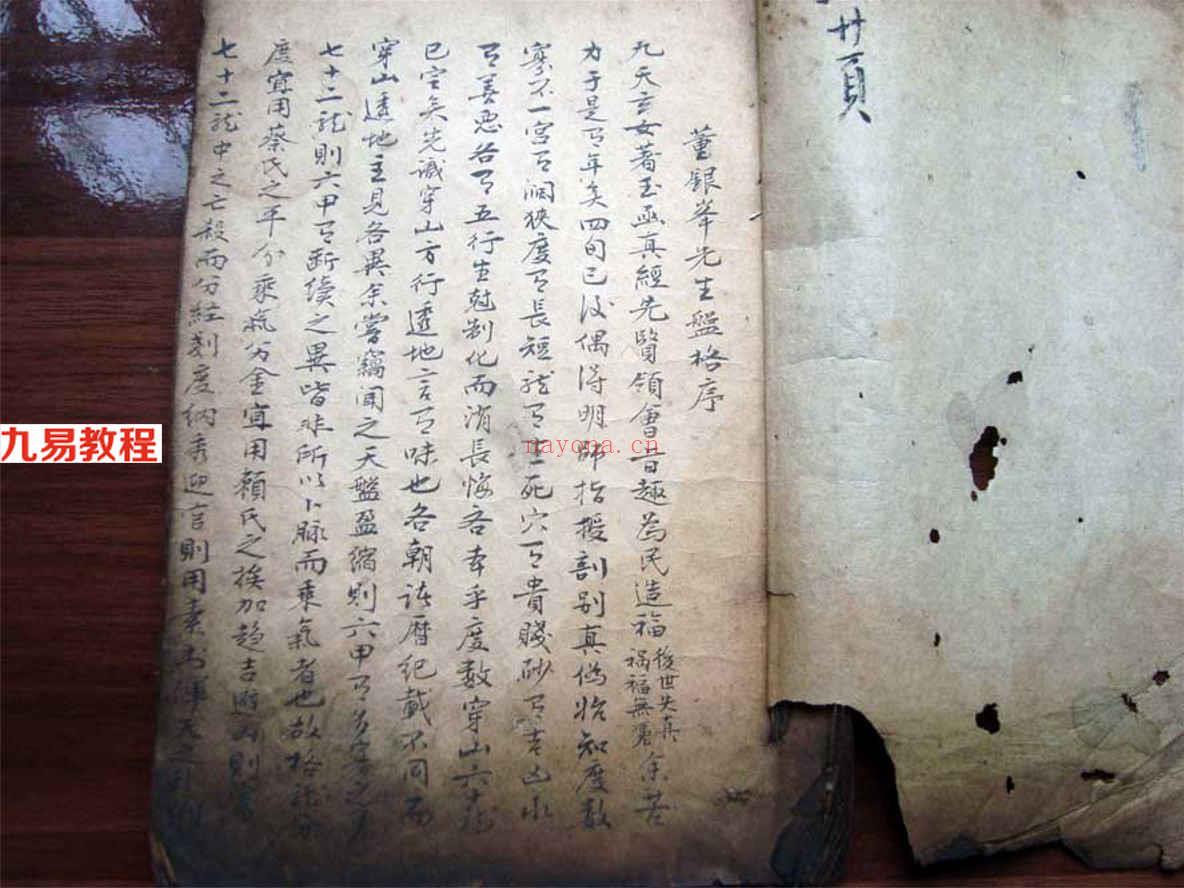 廿頁
董銀峯先生盤格序
九天玄女著玉函真經先賢領會旨趣為民造福後世失真禍福無憑余苦
力于是有年矣四旬已後偶得明師指授剖别真偽始知度数
寥不一宮有濶狹度有長短龍有生死穴有貴賤砂有吉凶水
有善惡各有五行生尅制化而消長悔吝本乎度数穿山六十龍
已定矣先識穿山方行透地言有味也各朝該曆紀載不同而
穿山透地主見各異余嘗竊聞之天盤盈縮則六甲有多寡之
七十二龍則六甲有断續之異皆非所以卜脉而乘氣者也故格龍分
度宜用蔡氏之平分乘氣分金宜用賴氏之挨加趨吉避凶則
七十二龍中之亡殺而分經刻度納秀迎官則用素書渾天之
九易教程
nayona.cn